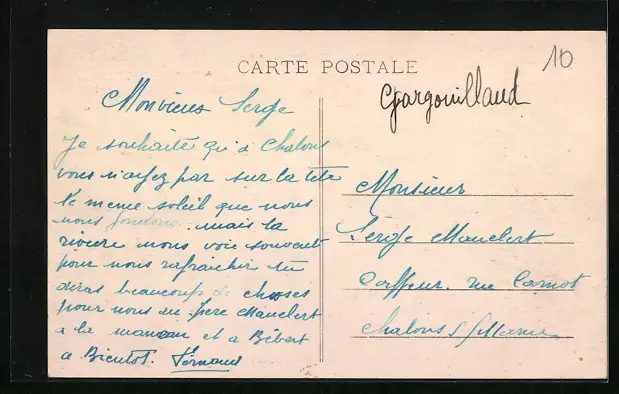 CARTE POSTALE
10
Gargouillaud
Mon vieux Serge
Je souhaite qu'à Chalons
vous n'ayez pas sur la tête
le meme soleil que nous
nous fondons. mais la
riviere nous voie souvent
pour nous rafraichir tu
diras beaucoup de choses
pour nous au père Mauclert
a la maman et a Bébert
a Bientot. Fernand
Monsieur
Serge Mauclert
Coiffeur. rue Carnot
Chalons s/Marne